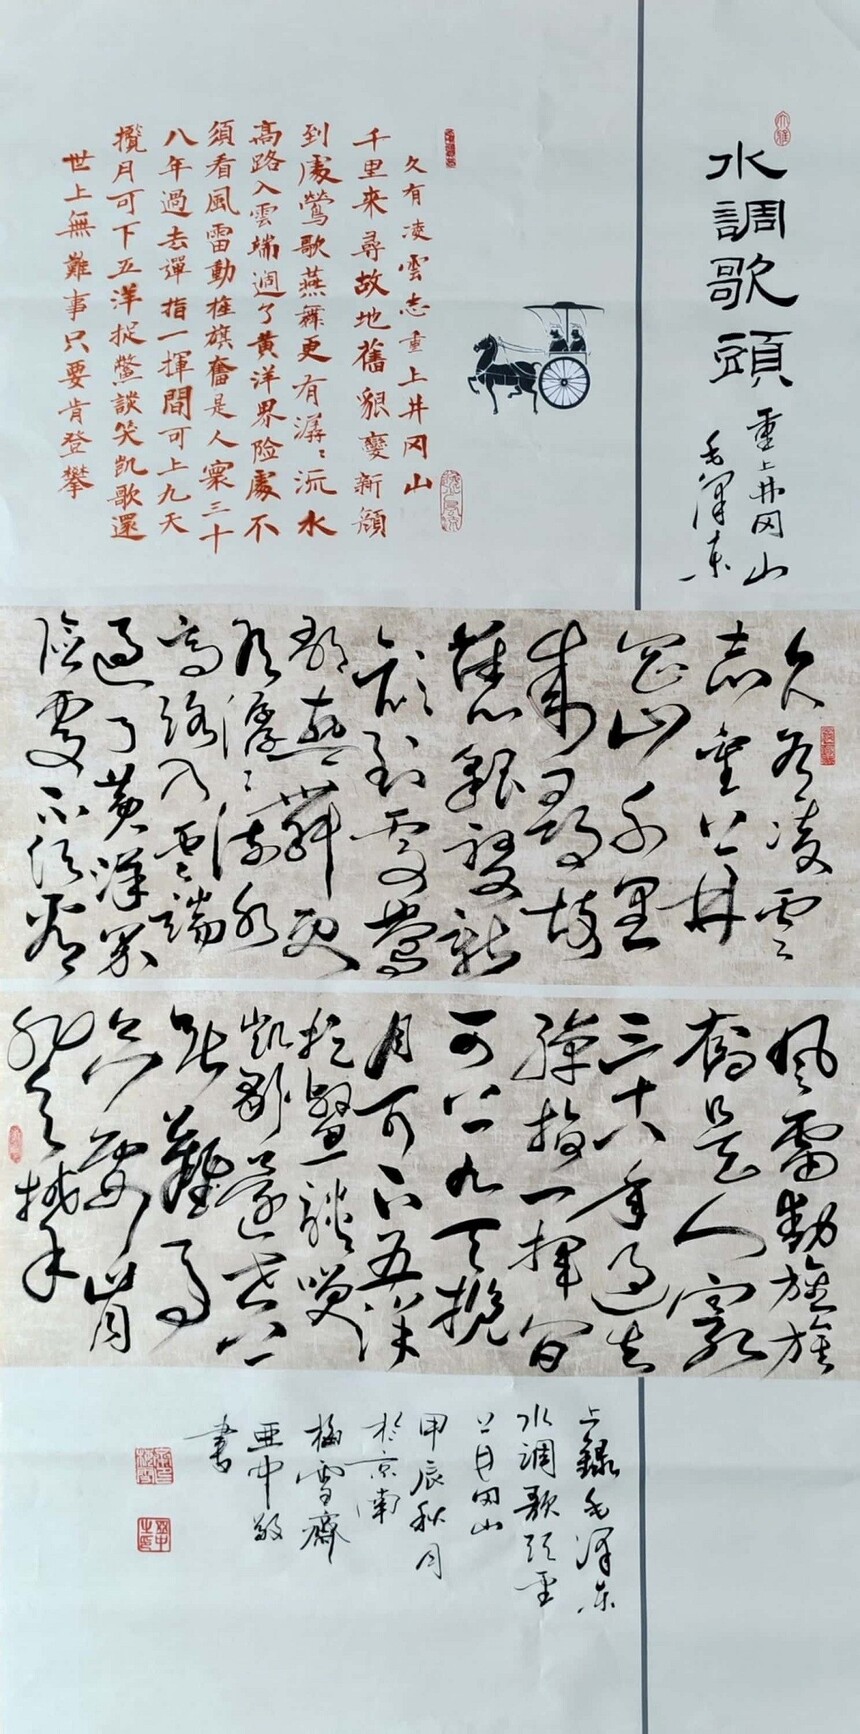 水調歌頭
重上井冈山
毛澤东
久有凌雲志重上井冈山
千里來尋故地舊貌變新顔
到處鶯歌燕舞更有潺〻流水
高路入雲端過了黄洋界险處不
須看風雷動旌旗奮是人寰三十
八年過去彈指一揮間可上九天
攬月可下五洋捉鱉談笑凱歌還
世上無難事只要肯登攀
久有凌雲
志重上井
岡山千里
來尋故
舊貌變新
顔到處鶯
歌燕舞更
有潺〻流水
高路入雲端
過了黄洋界
险處不須看
風雷動旌旗
奮是人寰
三十八年過去
彈指一揮間
可上九天攬
月可下五洋
捉鱉談笑
凱歌還世上
無難事
只要肯
登攀
上録毛澤东
水調歌頭重
上井冈山
甲辰秋月
於京南
梅雪齋
亜中敬
書